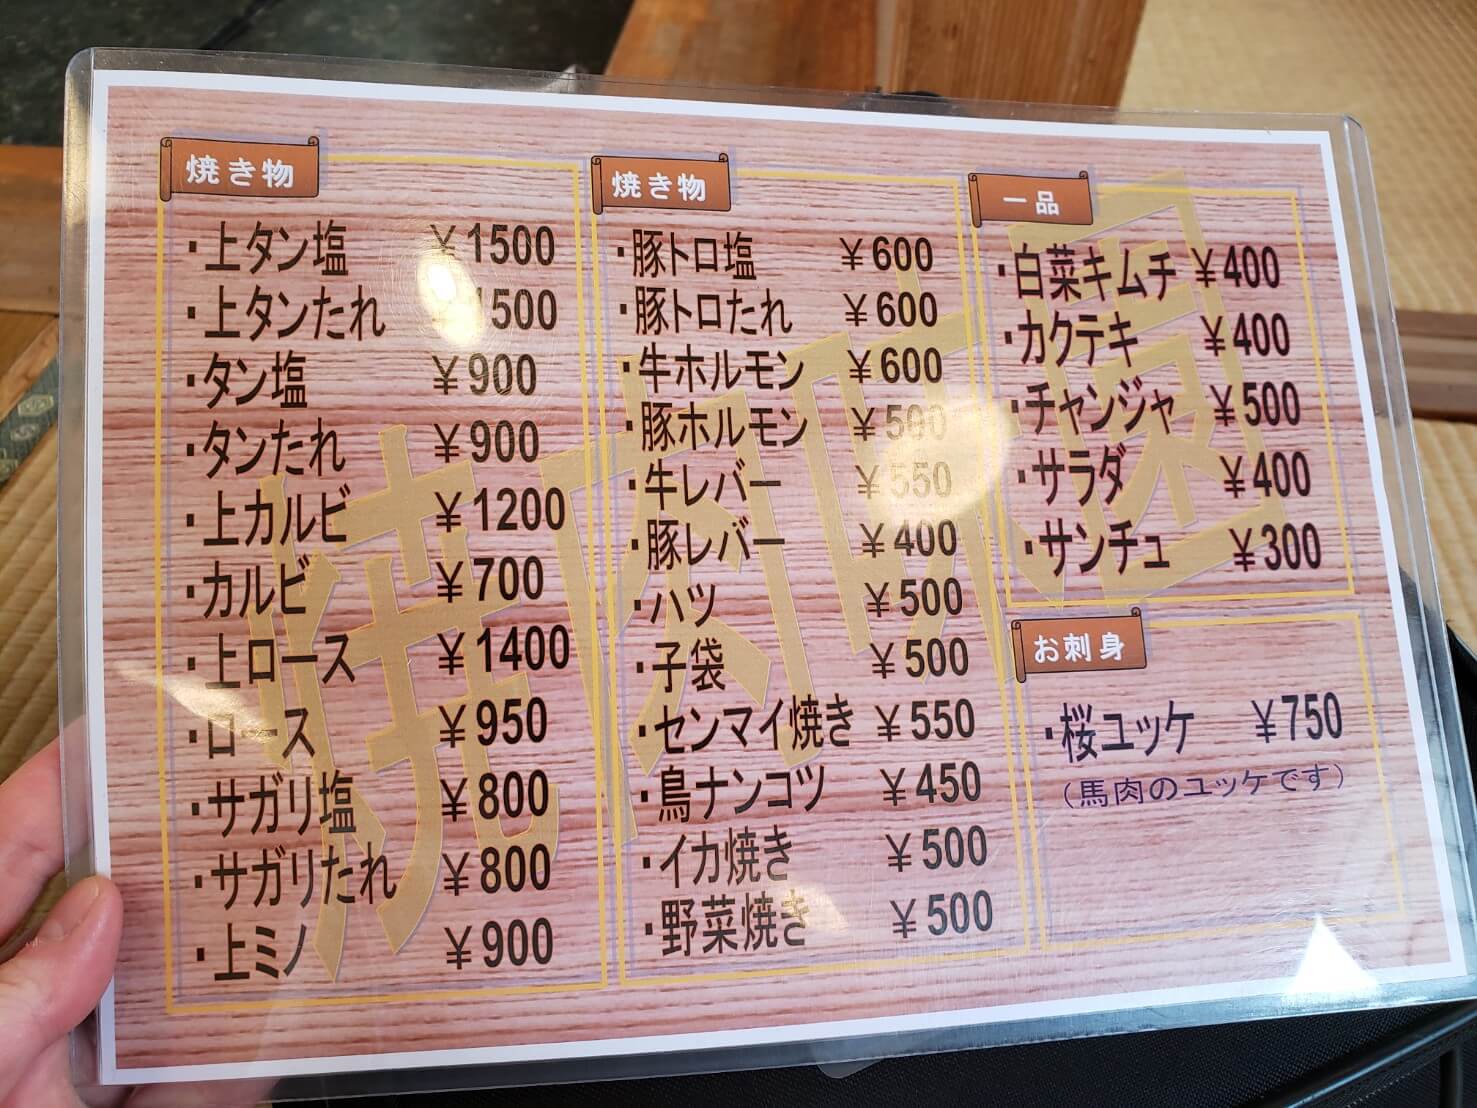 焼き物
・上タン塩 ￥1500
・上タンたれ ￥1500
・タン塩 ￥900
・タンたれ ￥900
・上カルビ ￥1200
・カルビ ￥700
・上ロース ￥1400
・ロース ￥950
・サガリ塩 ￥800
・サガリたれ ￥800
・上ミノ ￥900
焼き物
・豚トロ塩 ￥600
・豚トロたれ ￥600
・牛ホルモン ￥600
・豚ホルモン ￥500
・牛レバー ￥550
・豚レバー ￥400
・ハツ ￥500
・子袋 ￥500
・センマイ焼き ￥550
・鳥ナンコツ ￥450
・イカ焼き ￥500
・野菜焼き ￥500
一品
・白菜キムチ ￥400
・カクテキ ￥400
・チャンジャ ￥500
・サラダ ￥400
・サンチュ ￥300
お刺身
・桜ユッケ ￥750
（馬肉のユッケです）